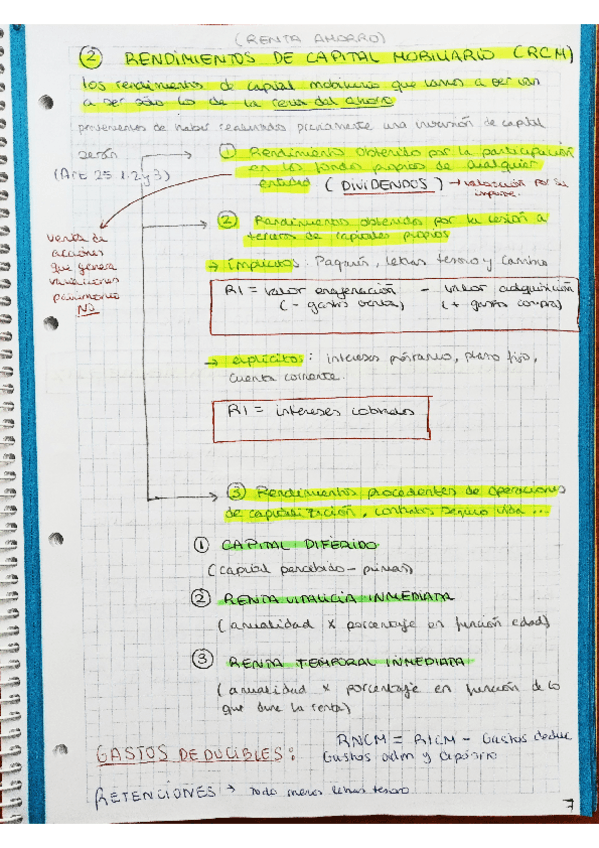 (RENTA AHORRO)
② RENDIMIENTOS DE CAPITAL MOBILIARIO (RCM)
Los rendimientos de capital mobiliario que vamos a ver van
a ser sólo lo de la renta del ahorro
provenientes de haber realizado previamente una inversión de capital
serán
(Art 25 1.2 y 3)
① Rendimiento obtenido por la participación
en los fondos propios de cualquier
entidad (DIVIDENDOS) → valoración por su
importe.
venta de
acciones
que genera
variaciones
patrimonio
NO
② Rendimientos obtenidos por la cesión a
terceros de capitales propios
→ implícitos: Pagarés, letras tesoro y
RI = valor enajenación - valor adquisición
(- gastos venta) (+ gastos compra)
→ explícitos: intereses préstamo, plazo fijo,
cuenta corriente.
RI = intereses cobrados
③ Rendimientos procedentes de operaciones
de capitalización, contratos seguro vida ...
① CAPITAL DIFERIDO
(capital percibido - primas)
② RENTA VITALICIA INMEDIATA
(anualidad x porcentaje en función edad)
③ RENTA TEMPORAL INMEDIATA
(anualidad x porcentaje en función de lo
que dure la renta)
GASTOS DEDUCIBLES: RNCM = RICM - Gastos deduc
Gastos adm y
RETENCIONES → todo menos letras tesoro
7